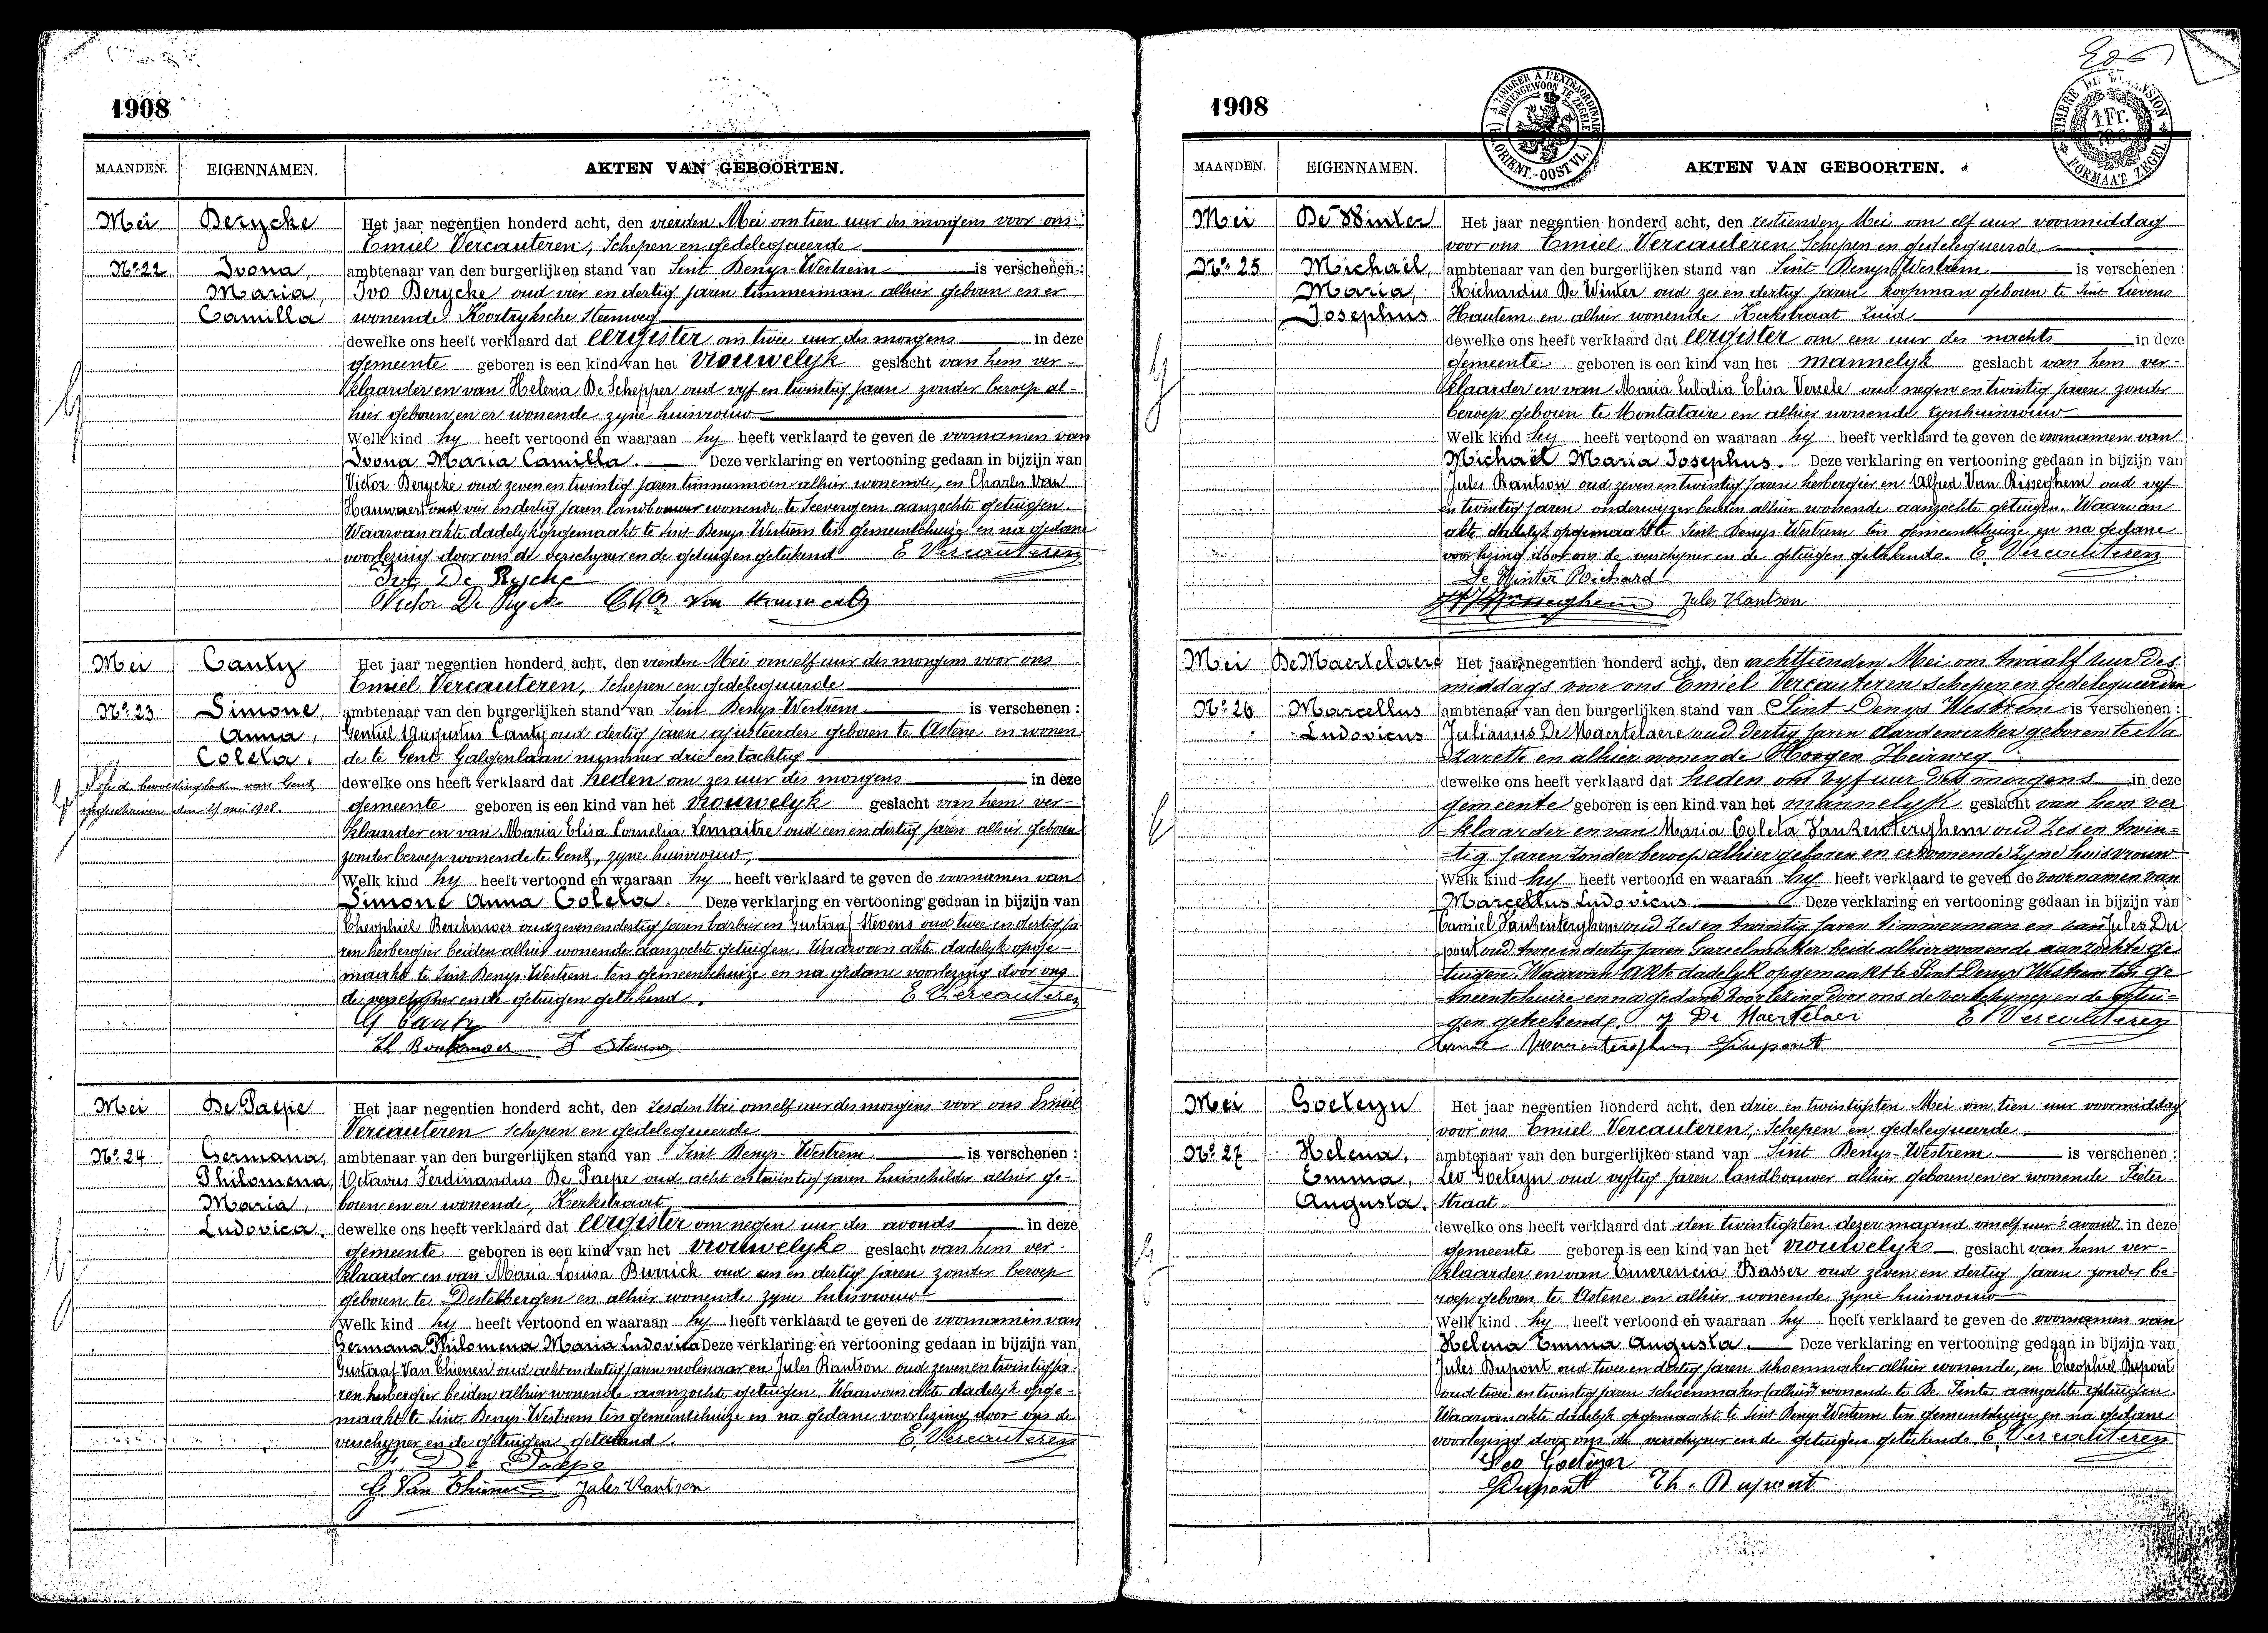 1908
MAANDEN. EIGENNAMEN. AKTEN VAN GEBOORTEN.
Mei Derycke Het jaar negentien honderd acht, den vierden Mei om tien uur des morgens voor ons
Emiel Vercauteren, Schepen en gedelegueerde
No. 22 Ivona, ambtenaar van den burgerlijken stand van Sint Denys-Westrem is verschenen :
Maria, Ivo Derycke oud vier en dertig jaren timmerman alhier geboren en er
Camilla wonende Kortryksche Steenweg
dewelke ons heeft verklaard dat eergister om twee uur des morgens in deze
gemeente geboren is een kind van het vrouwelyk geslacht van hem ver-
klaarder en van Helena De Schepper oud vyf en twintig jaren zonder beroep al-
hier geboren en er wonende zyne huisvrouw
Welk kind hy heeft vertoond en waaraan hy heeft verklaard te geven de voornamen van
Ivona Maria Camilla. Deze verklaring en vertooning gedaan in bijzijn van
Victor Derycke oud zeven en twintig jaren timmerman alhier wonende, en Charles Van
Hauwaert oud vier en dertig jaren landbouwer wonende te Seevergem aanzochte getuigen.
Waarvan akte dadelyk opgemaakt te Sint Denys-Westrem ten gemeentehuize en na gedane
voorlezing door ons de verschyner en de getuigen getekend E Vercauteren
Ivo De Rycke
Victor De Rycke Cha Van Hauwaert
Mei Canty Het jaar negentien honderd acht, den vierden Mei om elf uur des morgens voor ons
Emiel Vercauteren, Schepen en gedelegueerde
No. 23 Simone, ambtenaar van den burgerlijken stand van Sint Denys-Westrem is verschenen :
Anna, Gentiel Augustus Canty oud dertig jaren ajusteerder geboren te Astene en wonen
Coleta. de te Gent Galgenlaan nummer drie en tachtig
dewelke ons heeft verklaard dat heden om zes uur des morgens in deze
bevolkingboek van Gent
ingeschreven den 25 mei 1908.
gemeente geboren is een kind van het vrouwelyk geslacht van hem ver-
klaarder en van Maria Elisa Cornelia Lemaitre oud een en dertig jaren alhier geboren
zonder beroep wonende te Gent, zyne huisvrouw,
Welk kind hy heeft vertoond en waaraan hy heeft verklaard te geven de voornamen van
Simone Anna Coleta. Deze verklaring en vertooning gedaan in bijzijn van
Theophiel oud zeven en dertig jaren barbier en Gustaaf Stevens oud twee en dertig ja
ren herbergier beiden alhier wonende aanzochte getuigen. Waarvan akte dadelyk opge-
maakt te Sint Denys-Westrem ten gemeentehuize en na gedane voorlezing door ons
de verschyner en de getuigen getekend. E Vercauteren
G Canty
Th Stevens
Mei De Paepe Het jaar negentien honderd acht, den zesden Mei om elf uur des morgens voor ons Emiel
Vercauteren schepen en gedelegueerde
No. 24 Germana, ambtenaar van den burgerlijken stand van Sint Denys-Westrem is verschenen :
Philomena, Octavus Ferdinandus De Paepe oud acht en twintig jaren huisschilder alhier ge-
Maria, boren en er wonende, Kerkstraat
Ludovica. dewelke ons heeft verklaard dat eergister om negen uur des avonds in deze
gemeente geboren is een kind van het vrouwelyke geslacht van hem ver-
klaarder en van Maria Louisa Burrick oud een en dertig jaren zonder beroep
geboren te Destelbergen en alhier wonende zyne huisvrouw
Welk kind hy heeft vertoond en waaraan hy heeft verklaard te geven de voornamen van
Germana Philomena Maria Ludovica Deze verklaring en vertooning gedaan in bijzijn van
Gustaaf Van Thienen oud acht en dertig jaren molenaar en Jules Kantson oud zeven en twintig ja-
ren herbergier beiden alhier wonende aanzochte getuigen. Waarvan akte dadelyk opge-
maakt te Sint Denys-Westrem ten gemeentehuize en na gedane voorlezing door ons de
verschyner en de getuigen getekend. E. Vercauteren
De Paepe
G. Van Thienen Jules Kantson
1908
A TIMBRER A L'EXTRAORDINAIRE
BUITENGEWOON TE ZEGELEN
(FL. ORIENT.-OOST VL.)
TIMBRE DE DIMENSION
1 Fr.
FORMAAT ZEGEL
MAANDEN. EIGENNAMEN. AKTEN VAN GEBOORTEN.
Mei De Winter Het jaar negentien honderd acht, den zestienden Mei om elf uur voormiddag
voor ons Emiel Vercauteren Schepen en gedelegueerde
No. 25 Michaël, ambtenaar van den burgerlijken stand van Sint Denys Westrem is verschenen :
Maria, Richardus De Winter oud zes en dertig jaren koopman geboren te Sint Lievens
Josephus Houtem en alhier wonende Kerkstraat zuid
dewelke ons heeft verklaard dat eergister om een uur des nachts in deze
gemeente geboren is een kind van het mannelyk geslacht van hem ver-
klaarder en van Maria Eulalia Elisa Verrele oud negen en twintig jaren zonder
beroep geboren te Montataire en alhier wonende zyn huisvrouw
Welk kind hy heeft vertoond en waaraan hy heeft verklaard te geven de voornamen van
Michaël Maria Josephus. Deze verklaring en vertooning gedaan in bijzijn van
Jules Kantson oud zeven en twintig jaren herbergier en Alfred Van Risseghem oud vyf
en twintig jaren onderwijzer beiden alhier wonende aanzochte getuigen. Waarvan
akte dadelyk opgemaakt te Sint Denys Westrem ten gemeentehuize en na gedane
voorlezing door ons de verschyner en de getuigen getekende. E. Vercauteren
De Winter Richard
Jules Kantson
Mei De Maertelaere Het jaar negentien honderd acht, den achttienden Mei om twaalf uur des
middags voor ons Emiel Vercauteren schepen en Gedelegueerden
No. 26 Marcellus ambtenaar van den burgerlijken stand van Sint Denys Westrem is verschenen :
Ludovicus Julianus De Maertelaere oud dertig jaren aardewerker geboren te Na
zareth en alhier wonende Hoogen Heirweg
dewelke ons heeft verklaard dat heden om vyf uur des morgens in deze
gemeente geboren is een kind van het mannelyk geslacht van hem ver
klaarder en van Maria Coleta Vankenterghem oud zes en twin-
tig jaren zonder beroep alhier geboren en er wonende zyne huisvrouw
Welk kind hy heeft vertoond en waaraan hy heeft verklaard te geven de voornamen van
Marcellus Ludovicus Deze verklaring en vertooning gedaan in bijzijn van
Camiel Vankenterghem oud zes en twintig jaren timmerman en van Jules Du
pont oud twee en dertig jaren Gareelmaker beide alhier wonende aanzochte ge
tuigen. Waarvan akte dadelyk opgemaakt te Sint Denys Westrem ten ge
meentehuize en na gedane voorlezing door ons de verschyner en de getui-
gen getekende. J De Maertelaer E. Vercauteren
Dupont
Mei Goeteyn Het jaar negentien honderd acht, den drie en twintigsten Mei om tien uur voormiddag
voor ons Emiel Vercauteren, Schepen en gedelegueerde
No. 27 Helena, ambtenaar van den burgerlijken stand van Sint Denys-Westrem is verschenen :
Emma, Leo Goeteyn oud vyftig jaren landbouwer alhier geboren en er wonende Pieter
Augusta. Straat
dewelke ons heeft verklaard dat den twintigsten dezer maand om elf uur 's avonds in deze
gemeente geboren is een kind van het vrouwelyke geslacht van hem ver-
klaarder en van Emerencia Basser oud zeven en dertig jaren zonder be-
roep geboren te Astene en alhier wonende zyne huisvrouw
Welk kind hy heeft vertoond en waaraan hy heeft verklaard te geven de voornamen van
Helena Emma Augusta. Deze verklaring en vertooning gedaan in bijzijn van
Jules Dupont oud twee en dertig jaren schoenmaker alhier wonende, en Theophiel Dupont
oud twee en twintig jaren schoenmaker wonende te De Pinte aanzochte getuigen.
Waarvan akte dadelyk opgemaakt te Sint Denys Westrem ten gemeentehuize en na gedane
voorlezing door ons de verschyner en de getuigen getekende E. Vercauteren
Leo Goeteyn
Dupont Th. Dupont